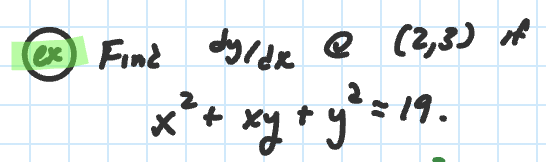 ex Find dy/dx @ (2,3) if
x² + xy + y² = 19.